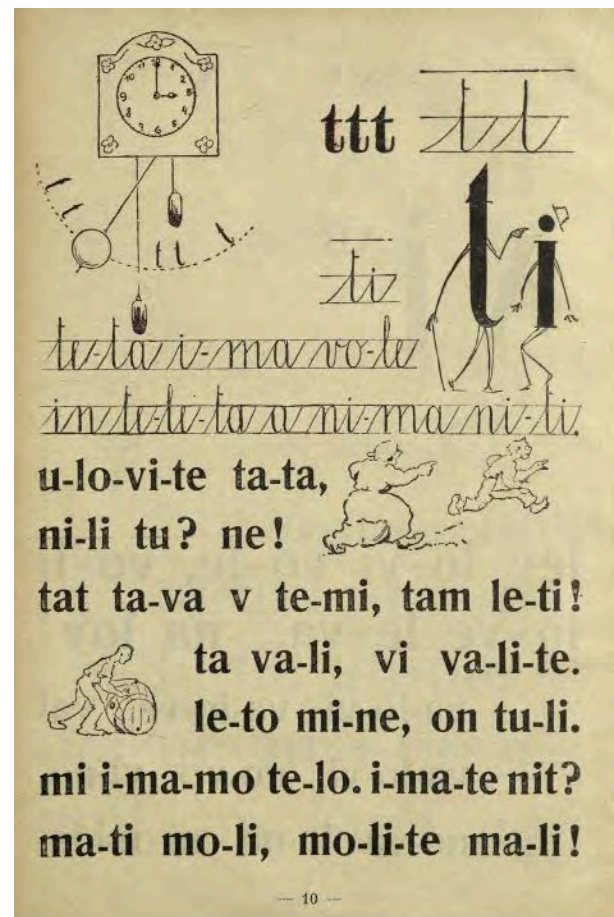 ttt t t
t t t t t
t i
ti
te-ta i-ma vo-le
in te-le-ta a ni-ma ni-ti.
u-lo-vi-te ta-ta,
ni-li tu? ne!
tat ta-va v te-mi, tam le-ti!
ta va-li, vi va-li-te.
le-to mi-ne, on tu-li.
mi i-ma-mo te-lo. i-ma-te nit?
ma-ti mo-li, mo-li-te ma-li!
— 10 —